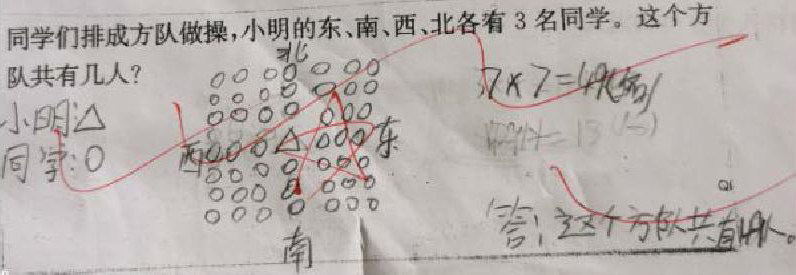 同学们排成方队做操,小明的东、南、西、北各有3名同学。这个方
队共有几人?
北
小明:△
同学:○
7×7=49(名)
西
东
南
答:这个方队共有49人。